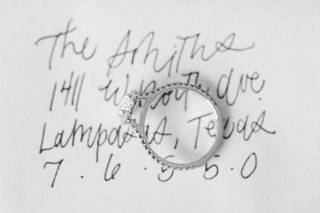 The Smiths
1411 Ave.
Lampasas, Texas
7 . 6 . 5 5 . 0